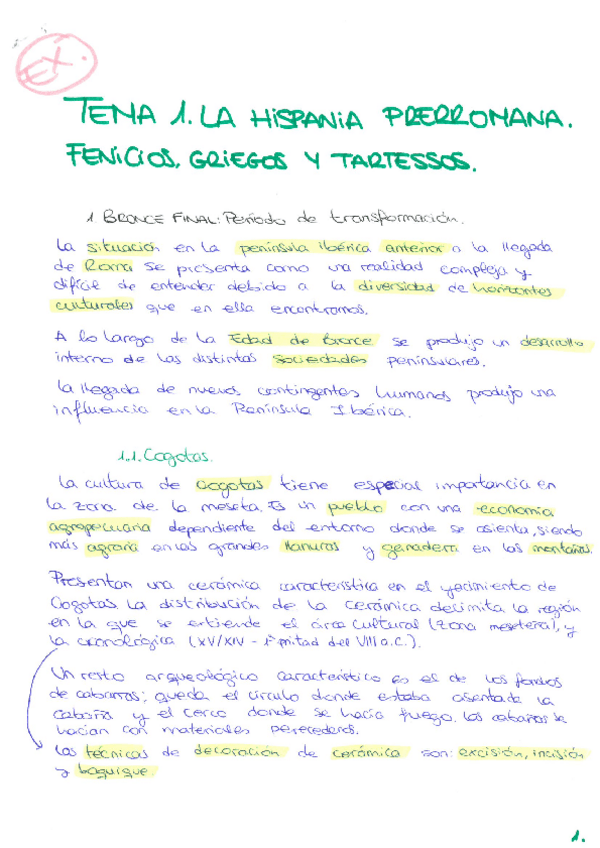 EX.
TEMA 1. LA HISPANIA PRERROMANA.
FENICIOS, GRIEGOS Y TARTESSOS.
1 BRONCE FINAL: Período de transformación.
La situación en la península ibérica anterior a la llegada
de Roma se presenta como una realidad compleja y
difícil de entender debido a la diversidad de horizontes
culturales que en ella encontramos.
A lo largo de la Edad de Bronce se produjo un desarrollo
interno de las distintas sociedades peninsulares.
La llegada de nuevos contingentes humanos produjo una
influencia en la Península Ibérica.
1.1. Cogotas.
La cultura de Cogotas tiene especial importancia en
la zona de la meseta. Es un pueblo con una economía
agropecuaria dependiente del entorno donde se asienta, siendo
más agraria en las grandes llanuras y ganadera en las montañas.
Presentan una cerámica característica en el yacimiento de
Cogotas. La distribución de la cerámica delimita la región
en la que se extiende el área cultural (zona meseteña), y
la cronológica (XV/XIV - 1ª mitad del VIII a.C.).
Un resto arqueológico característico es el de los fondos
de cabañas; queda el círculo donde estaba asentada la
cabaña y el cerco donde se hacía fuego. Las cabañas se
hacían con materiales perecederos.
Las técnicas de decoración de cerámica son: excisión, incisión
y boquique.
1.